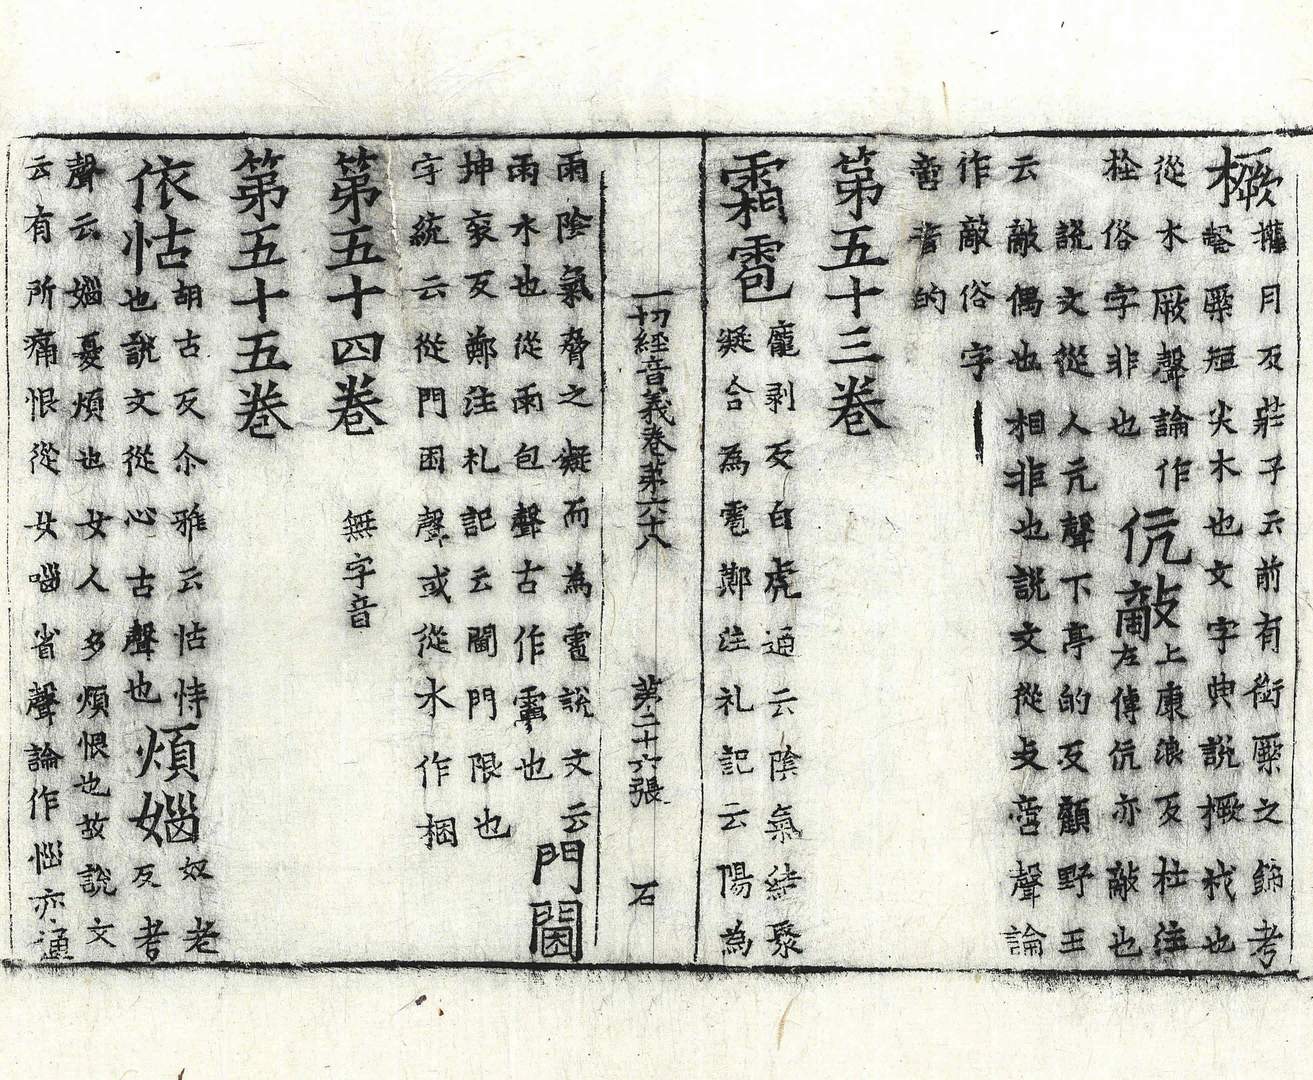 橛
權月反莊子云前有銜橛之飾考
聲橛短尖木也文字典說橛杙也
從木厥聲論作
栓俗字非也
伉敵
上康浪反杜注
左傳伉亦敵也
說文從人亢聲下亭的反顧野王
云敵偶也相非也說文從攴啻聲論
作敵俗字
啻音的
第五十三卷
霜雹
龐剥反白虎通云陰氣結聚
凝合為雹鄭注礼記云陽為
一切經音義卷第六十八 第二十六張 石
雨陰氣脅之凝而為雹說文云
雨氷也從雨包聲古作䨔也
門閫
坤衮反鄭注礼記云閫門限也
字統云從門困聲或從木作梱
第五十四卷 無字音
第五十五卷
依怙
胡古反尒雅云怙恃
也說文從心古聲也
煩嫋
奴老
反考
聲云嫋憂煩也女人多煩恨也故說文
云有所痛恨從女𡿺省聲論作惱亦通